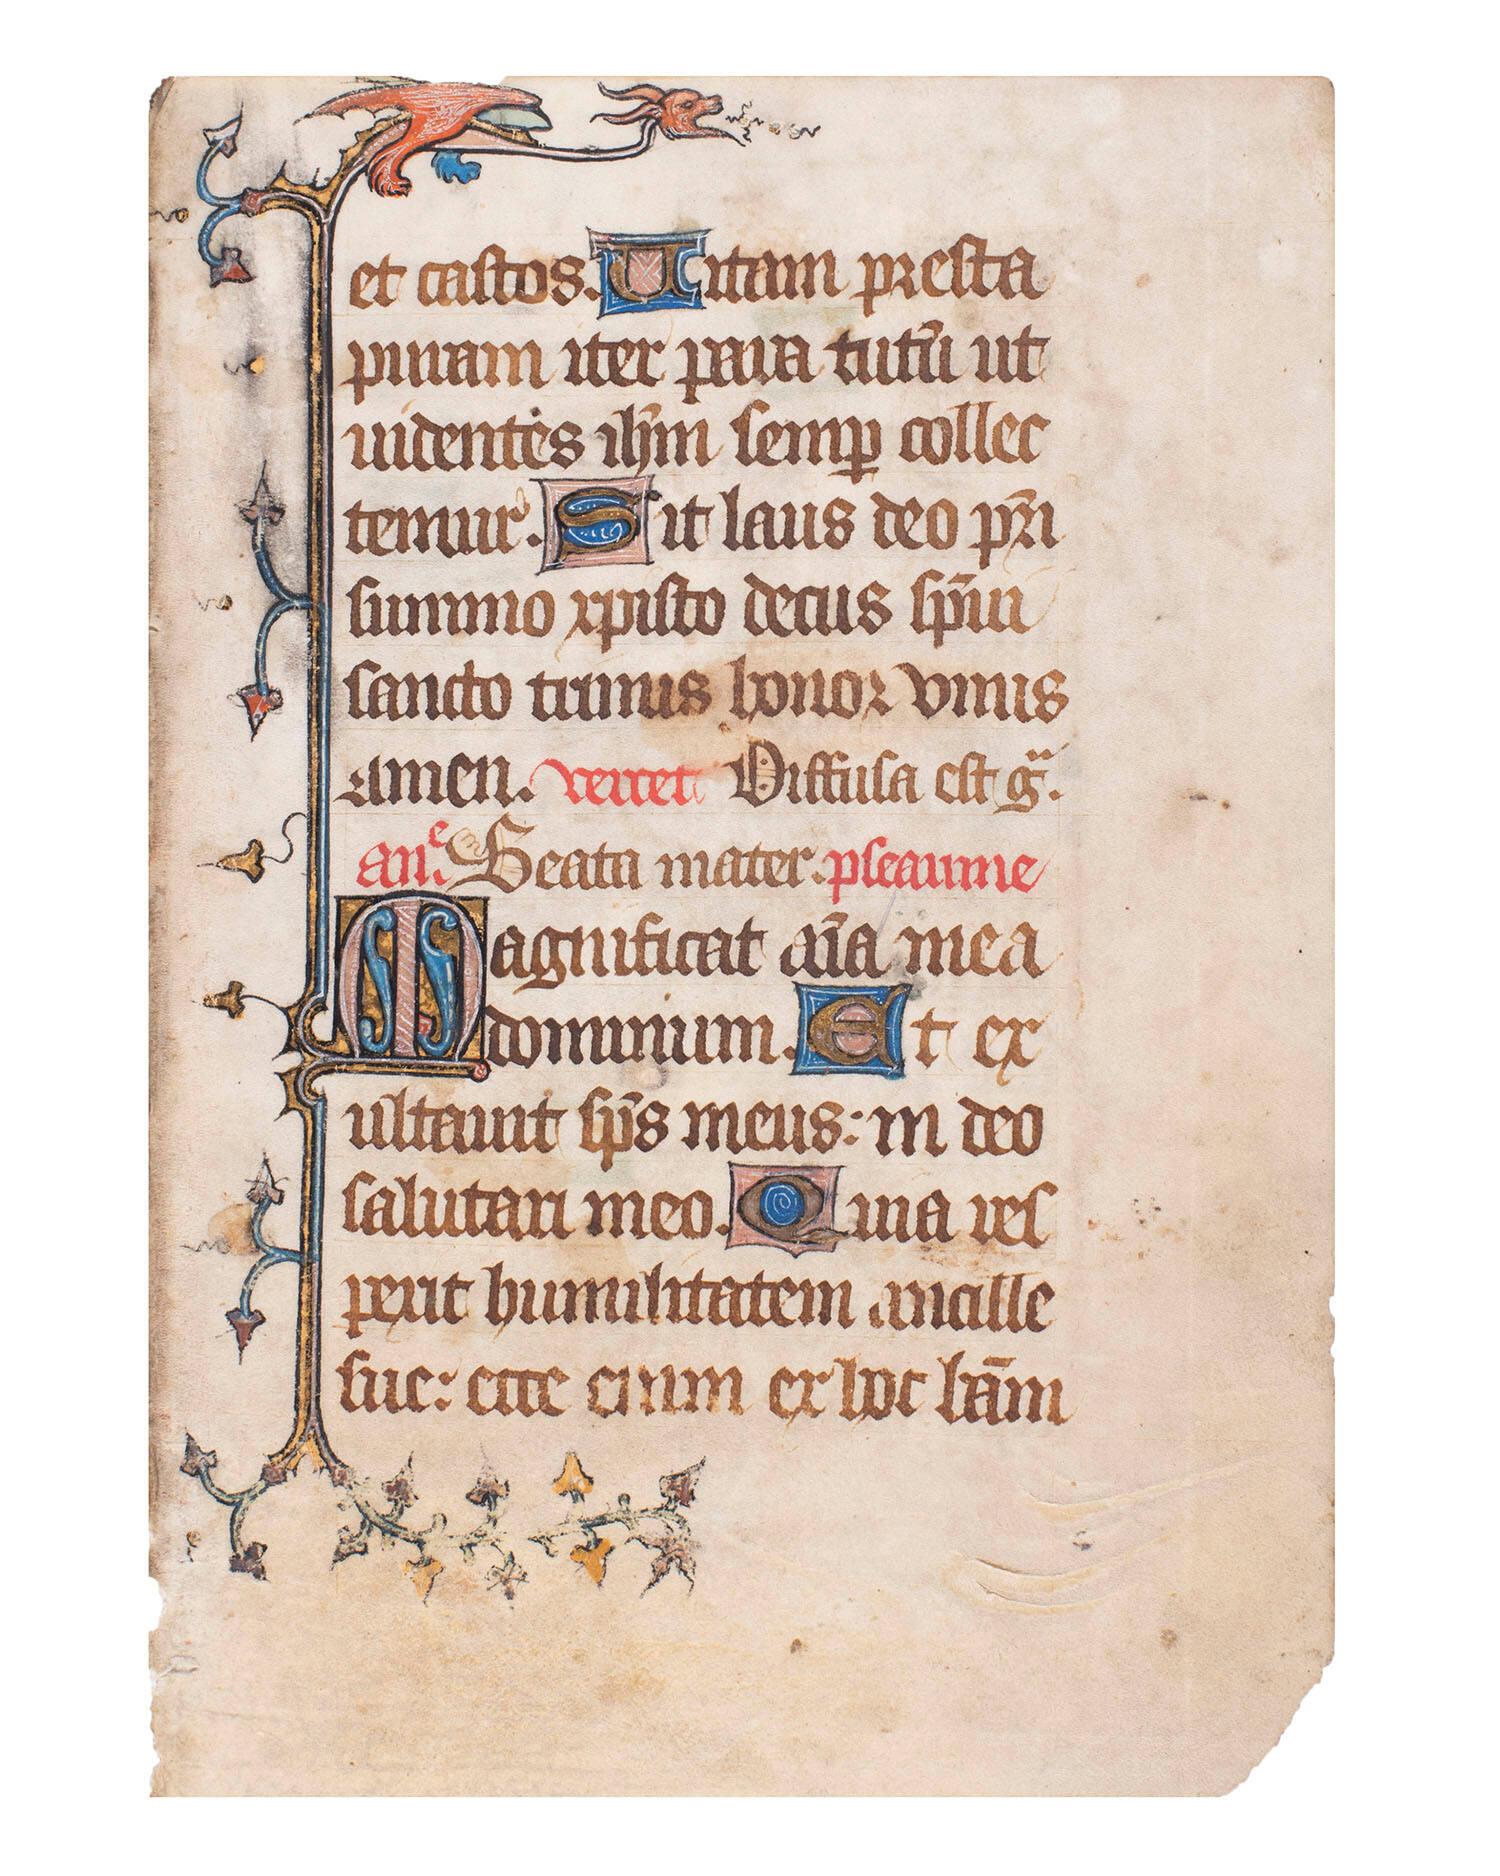 et castos. Uitam presta
puram iter para tutū ut
uidentes ih̄m semp̄ collec
temur. Sit laus deo pr̄i
summo xpisto decus sp̄ui
sancto trinus honor vnus
amen. verset Diffusa est gr̄a.
anᵉ. Beata mater. pseaume
Magnificat aīa mea
dominum. Et ex
ultauit sp̄s meus: in deo
salutari meo. Quia res
perit humilitatem ancille
sue: ecce enim ex hoc bēam